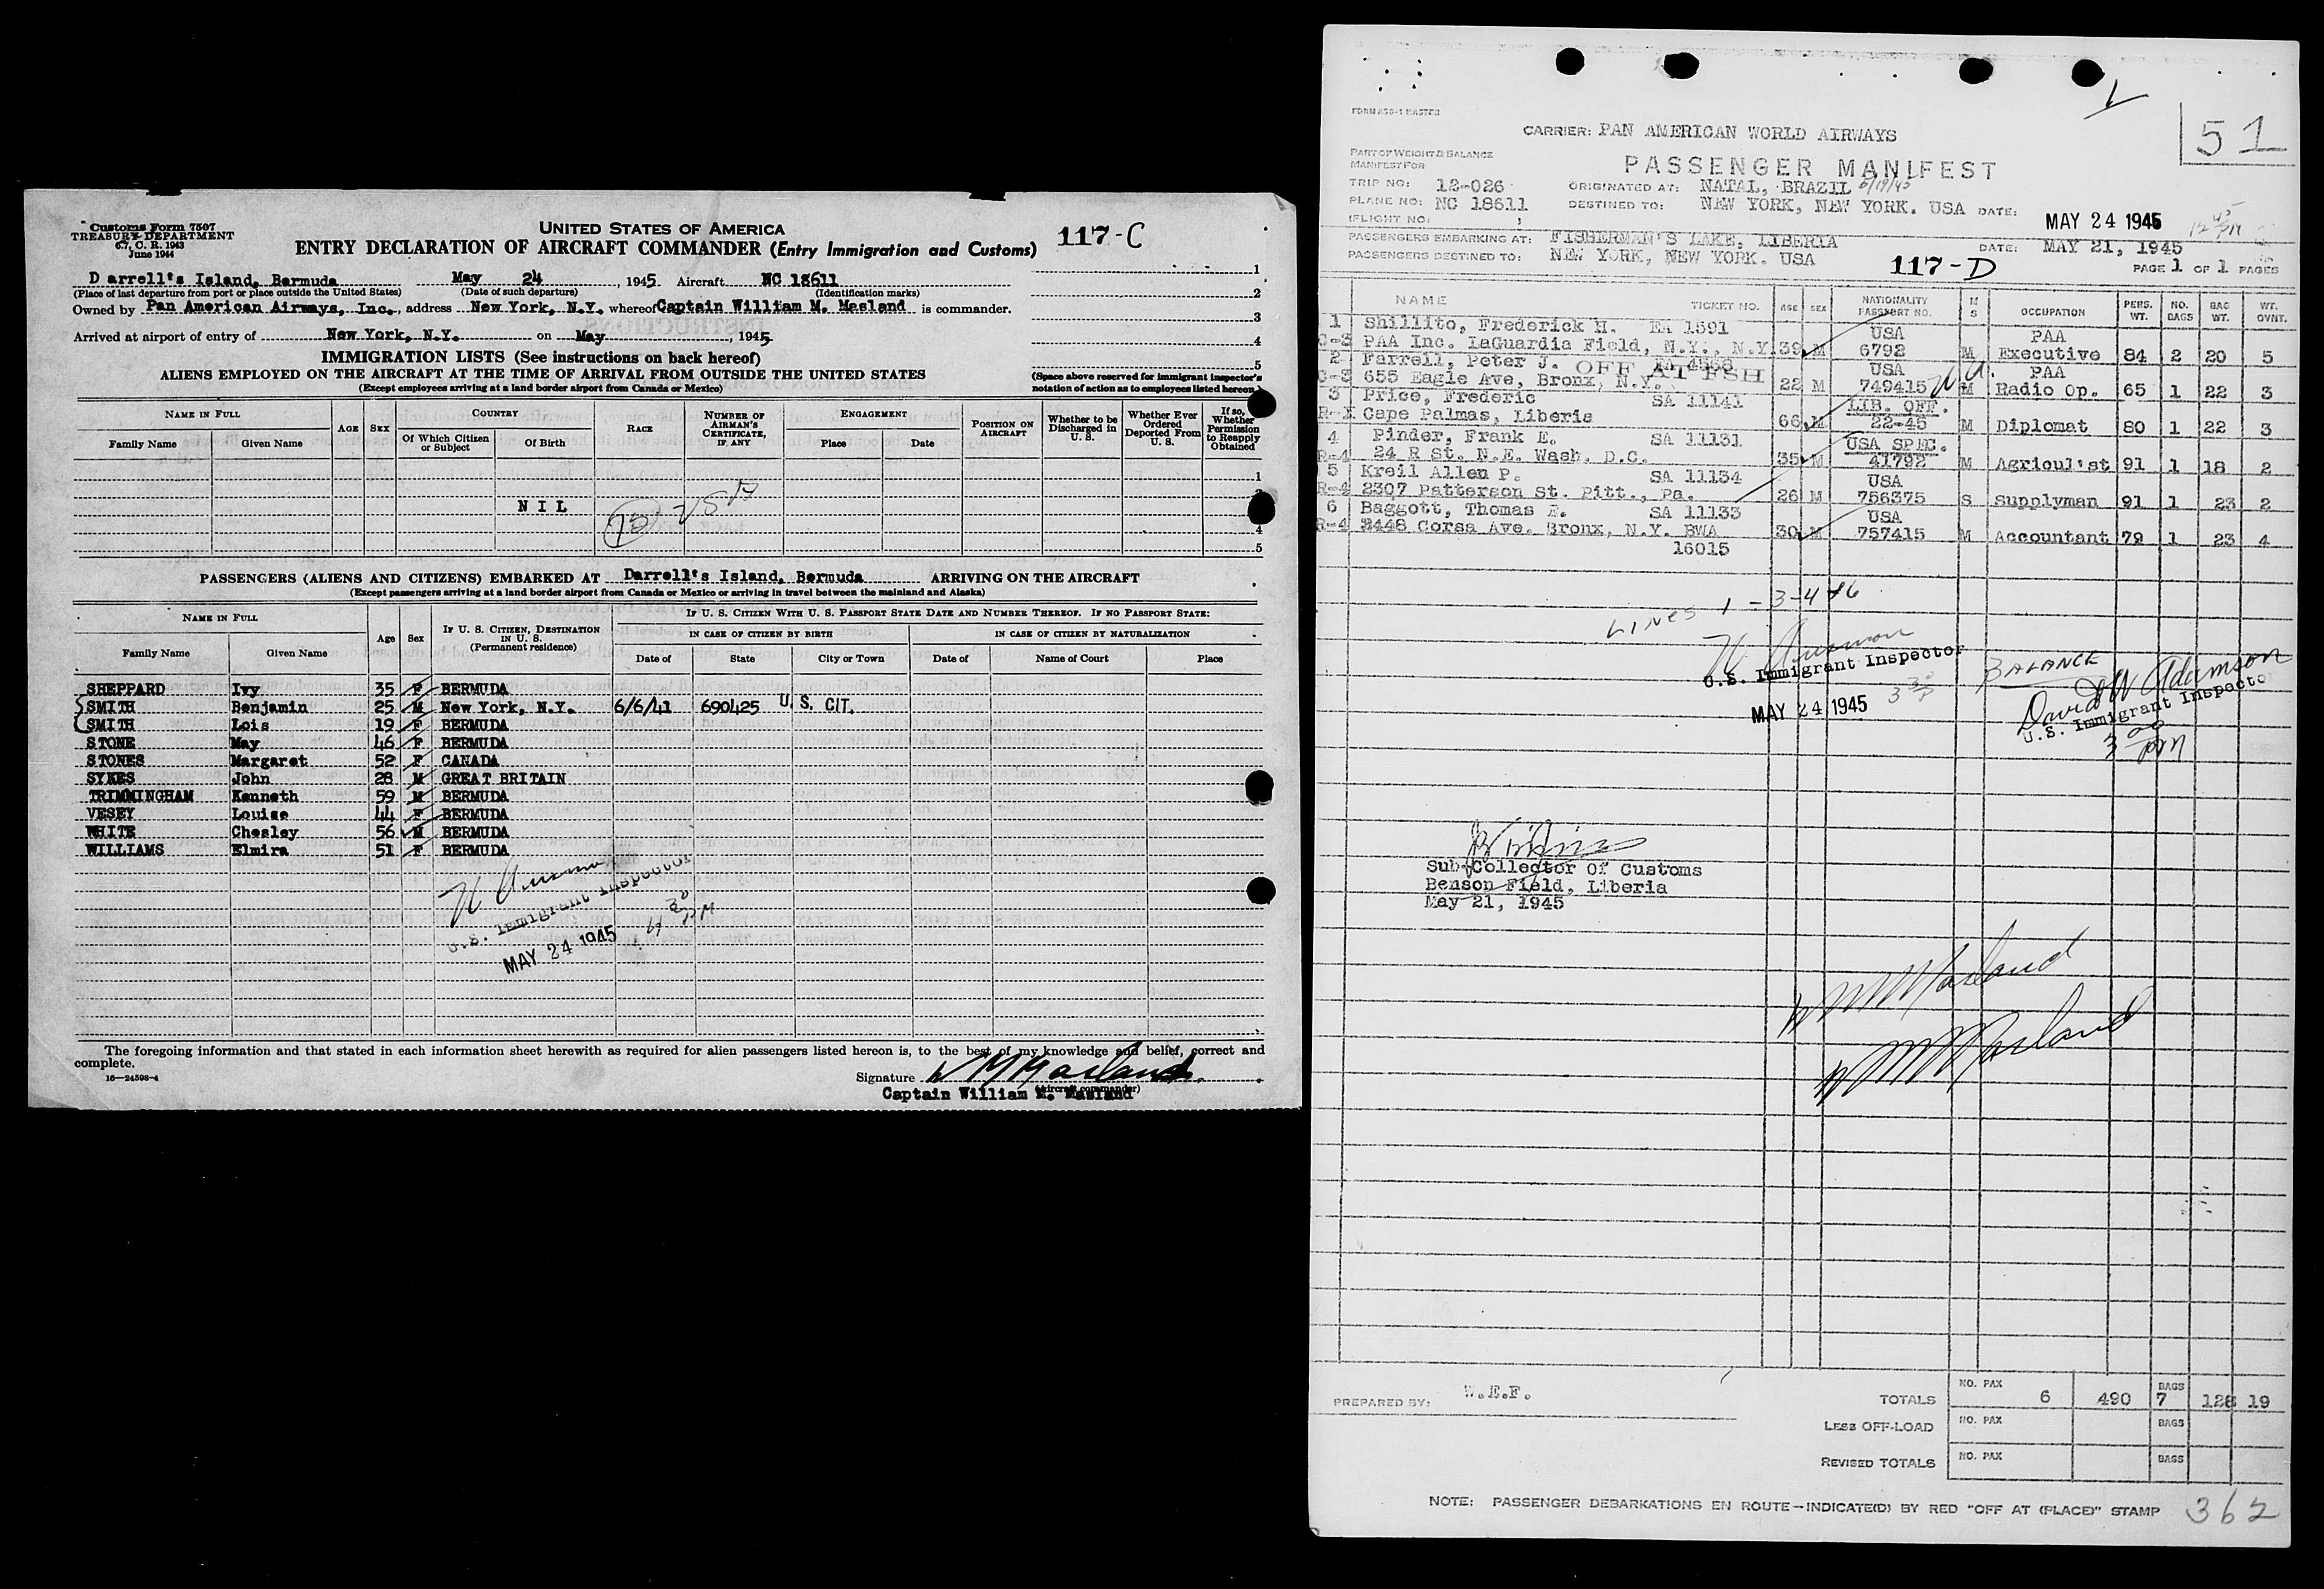 Customs Form 7507
TREASURY DEPARTMENT
6.7, C. R. 1943
June 1944
UNITED STATES OF AMERICA
ENTRY DECLARATION OF AIRCRAFT COMMANDER (Entry Immigration and Customs)
117-C
Darrell's Island, Bermuda May 24, 1945 Aircraft NC 18611
(Place of last departure from port or place outside the United States) (Date of such departure) (Identification marks)
Owned by Pan American Airways, Inc., address New York, N.Y. whereof Captain William M. Masland is commander.
Arrived at airport of entry of New York, N.Y. on May, 1945.
1
2
3
4
5
IMMIGRATION LISTS (See instructions on back hereof)
ALIENS EMPLOYED ON THE AIRCRAFT AT THE TIME OF ARRIVAL FROM OUTSIDE THE UNITED STATES
(Except employees arriving at a land border airport from Canada or Mexico)
(Space above reserved for immigrant inspector's notation of action as to employees listed hereon)
NAME IN FULL AGE SEX COUNTRY RACE NUMBER OF AIRMAN'S CERTIFICATE, IF ANY ENGAGEMENT POSITION ON AIRCRAFT Whether to be Discharged in U. S. Whether Ever Ordered Deported From U. S. If so, Whether Permission to Reapply Obtained
Family Name Given Name Of Which Citizen or Subject Of Birth Place Date
1
NIL
4
5
PASSENGERS (ALIENS AND CITIZENS) EMBARKED AT Darrell's Island, Bermuda ARRIVING ON THE AIRCRAFT
(Except passengers arriving at a land border airport from Canada or Mexico or arriving in travel between the mainland and Alaska)
NAME IN FULL Age Sex IF U. S. CITIZEN, DESTINATION IN U. S. (Permanent residence) IF U. S. CITIZEN WITH U. S. PASSPORT STATE DATE AND NUMBER THEREOF. IF NO PASSPORT STATE:
IN CASE OF CITIZEN BY BIRTH IN CASE OF CITIZEN BY NATURALIZATION
Family Name Given Name Date of State City or Town Date of Name of Court Place
SHEPPARD Ivy 35 F BERMUDA
SMITH Benjamin 25 M New York, N.Y. 6/6/41 690425 U.S. CIT.
SMITH Lois 19 F BERMUDA
STONE May 46 F BERMUDA
STONES Margaret 52 F CANADA
SYKES John 28 M GREAT BRITAIN
TRIMMINGHAM Kenneth 59 M BERMUDA
VESEY Louise 44 F BERMUDA
WHITE Chesley 56 M BERMUDA
WILLIAMS Elmira 51 F BERMUDA
U.S. Immigrant Inspector
MAY 24 1945 4 30 PM
The foregoing information and that stated in each information sheet herewith as required for alien passengers listed hereon is, to the best of my knowledge and belief, correct and complete.
16—24598-4
Signature W M Masland
(Aircraft commander)
Captain William M. Masland
FORM ASG-1 MASTER
CARRIER: PAN AMERICAN WORLD AIRWAYS
51
PART OF WEIGHT & BALANCE
MANIFEST FOR
PASSENGER MANIFEST
TRIP NO: 12-026 ORIGINATED AT: NATAL, BRAZIL 5/19/45
PLANE NO: NC 18611 DESTINED TO: NEW YORK, NEW YORK. USA DATE: MAY 24 1945 12 45 PM
(FLIGHT NO:
PASSENGERS EMBARKING AT: FISHERMAN'S LAKE, LIBERIA DATE: MAY 21, 1945
PASSENGERS DESTINED TO: NEW YORK, NEW YORK. USA 117-D PAGE 1 OF 1 PAGES
NAME TICKET NO. AGE SEX NATIONALITY PASSPORT NO. M S OCCUPATION PERS. WT. NO. BAGS BAG WT. WT. OVNT.
1 Shillito, Frederick H. EA 1591 USA PAA
C-3 PAA Inc. LaGuardia Field, N.Y., N.Y. 39 M 6792 M Executive 84 2 20 5
2 Farrell, Peter J. EA 4558 USA PAA
OFF AT FSH
C-3 655 Eagle Ave, Bronx, N.Y. 22 M 749415 M Radio Op. 65 1 22 3
3 Price, Frederic SA 11141 LIB. OFF.
R-X Cape Palmas, Liberia 66 M 22-45 M Diplomat 80 1 22 3
4 Pinder, Frank E. SA 11131 USA SPEC.
R-4 24 R St. N.E. Wash. D.C. 35 M 41792 M Agricul'st 91 1 18 2
5 Kreil Allen P. SA 11134 USA
R-4 2307 Patterson St. Pitt., Pa. 26 M 756375 S Supplyman 91 1 23 2
6 Baggott, Thomas F. SA 11133 USA
R-4 2448 Corsa Ave. Bronx, N.Y. BWA 30 M 757415 M Accountant 79 1 23 4
16015
LINES 1-3-4+6
U.S. Immigrant Inspector
MAY 24 1945 3 30 P
BALANCE
David W Adamson
U.S. Immigrant Inspector
3 00 PM
Sub-Collector Of Customs
Benson Field, Liberia
May 21, 1945
W M Masland
W M Masland
PREPARED BY: W.E.F.
TOTALS NO. PAX 6 490 BAGS 7 128 19
LESS OFF-LOAD NO. PAX BAGS
REVISED TOTALS NO. PAX BAGS
NOTE: PASSENGER DEBARKATIONS EN ROUTE—INDICATE(D) BY RED "OFF AT (PLACE)" STAMP 362